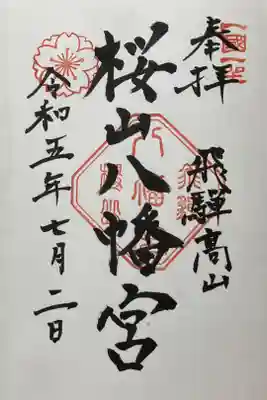 奉拝
飛騨高山
桜山八幡宮
令和五年七月二日